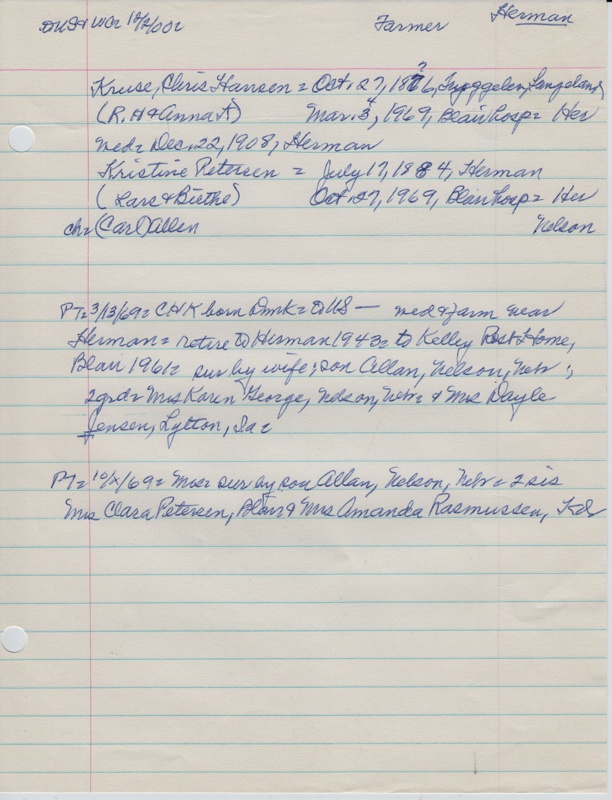 Farmer Herman
Kruse, Chris Hansen = Oct. 27, 1876, Langeland,
(R.H & Anna K) Mar. 3, 1969, Blair hosp = Her
wed = Dec. 22, 1908, Herman
Kristine Petersen = July 17, 1884, Herman
(Lars & Birthe) Oct. 27, 1969, Blair hosp = Her
ch = (Carl) Allen Nelson
PT = 3/13/69 = CHK born Dmk = to US — wed & farm near
Herman = retire to Herman 1943 = to Kelley Rest Home,
Blair 1961 = sur by wife; son Allan, Nelson, Nebr;
2 grd = Mrs Karen George, Nelson, Nebr = & Mrs Dayle
Jensen, Lytton, Ia =
PT = 69 = Mrs = sur by son Allan, Nelson, Nebr = 2 sis
Mrs Clara Petersen, Blair & Mrs Amanda Rasmussen,